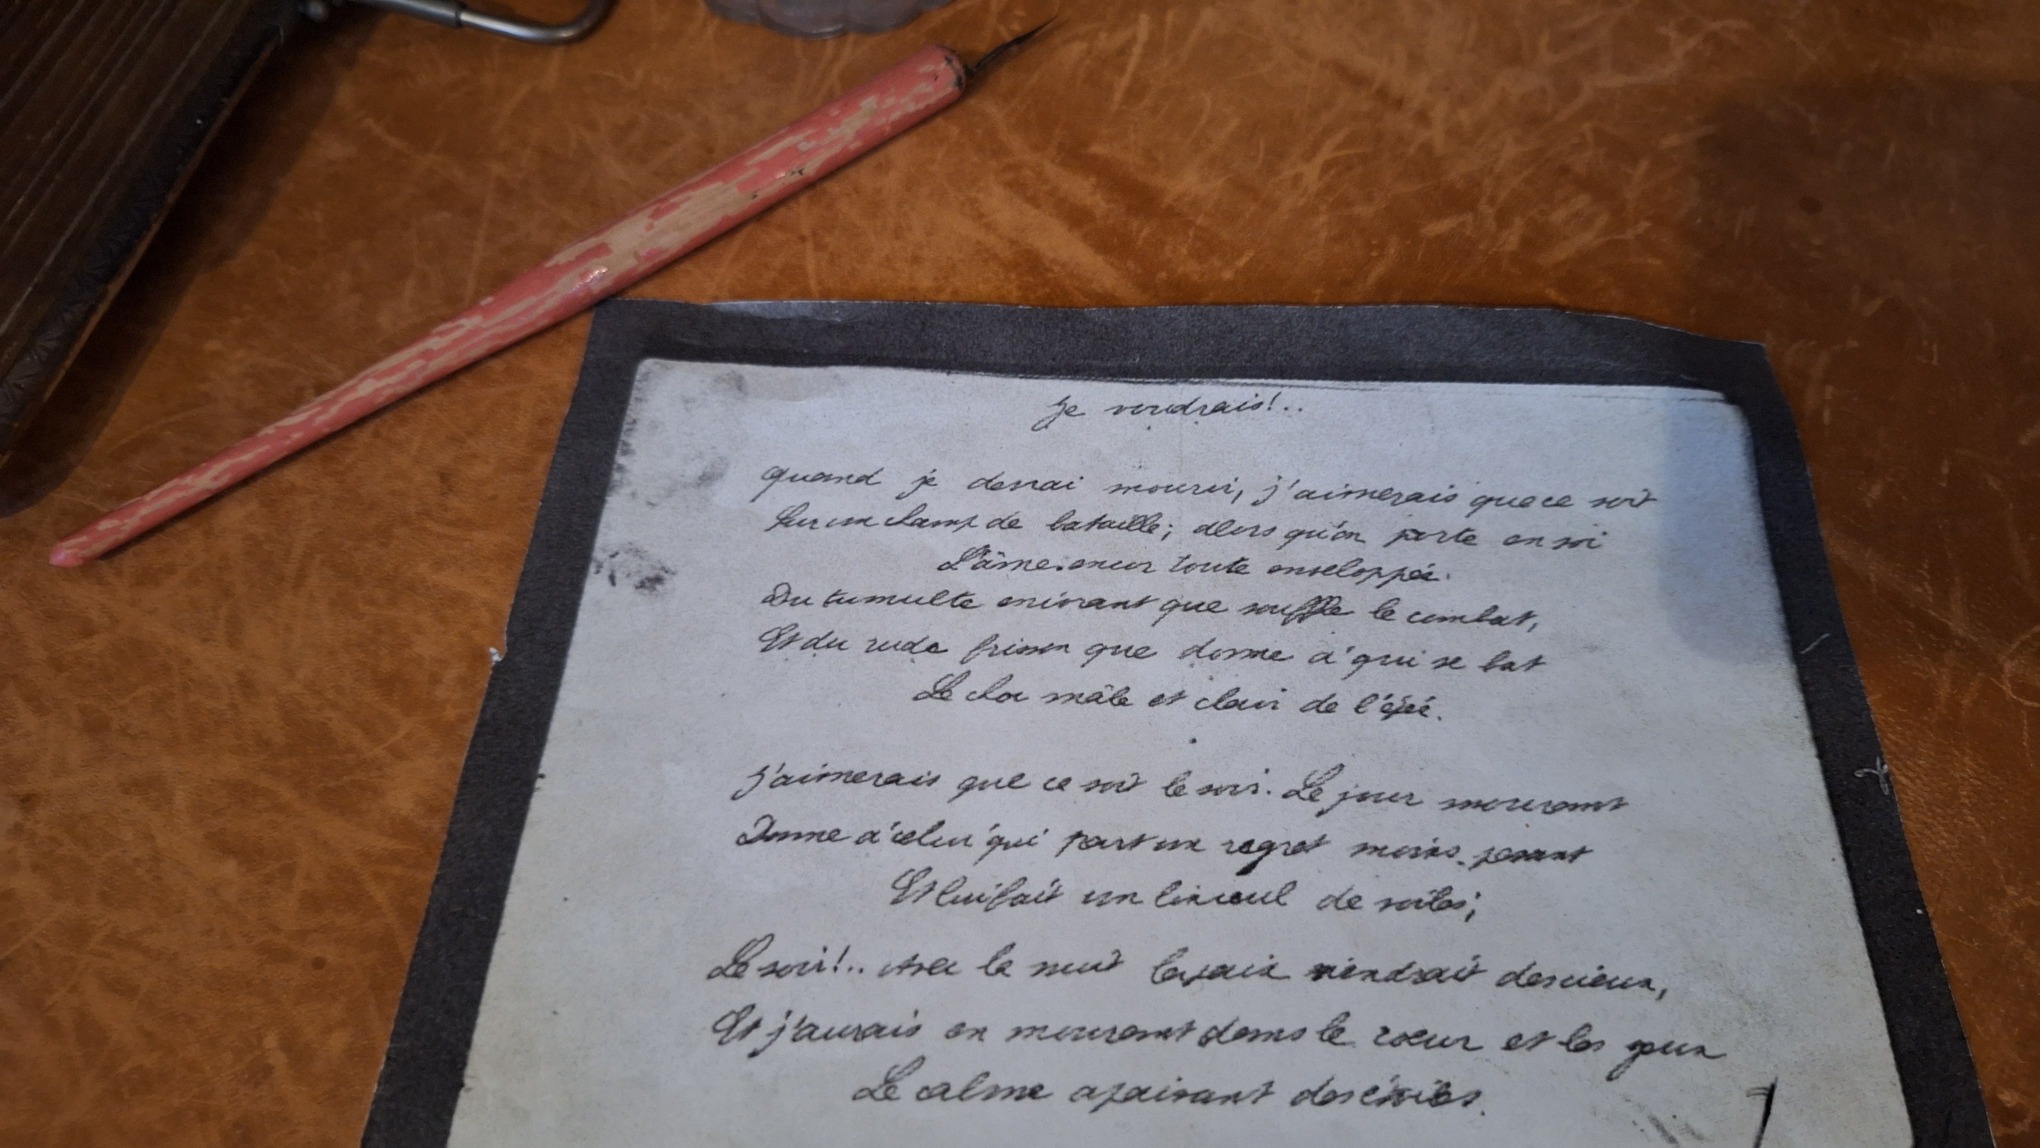 Je voudrais!..
Quand je devrai mourir, j'aimerais que ce soit
Sur un champ de bataille; alors qu'on porte en soi
L'âme encor toute enveloppée
Du tumulte enivrant que souffle le combat,
Et du rude frisson que donne à qui se bat
Le choc mâle et clair de l'épée.
J'aimerais que ce soit le soir. Le jour mourant
Donne à celui qui part un regret moins pesant
Et lui fait un linceul de voiles;
Le soir!.. Avec la nuit la paix viendrait des cieux,
Et j'aurais en mourant dans le cœur et les yeux
Le calme apaisant des étoiles.